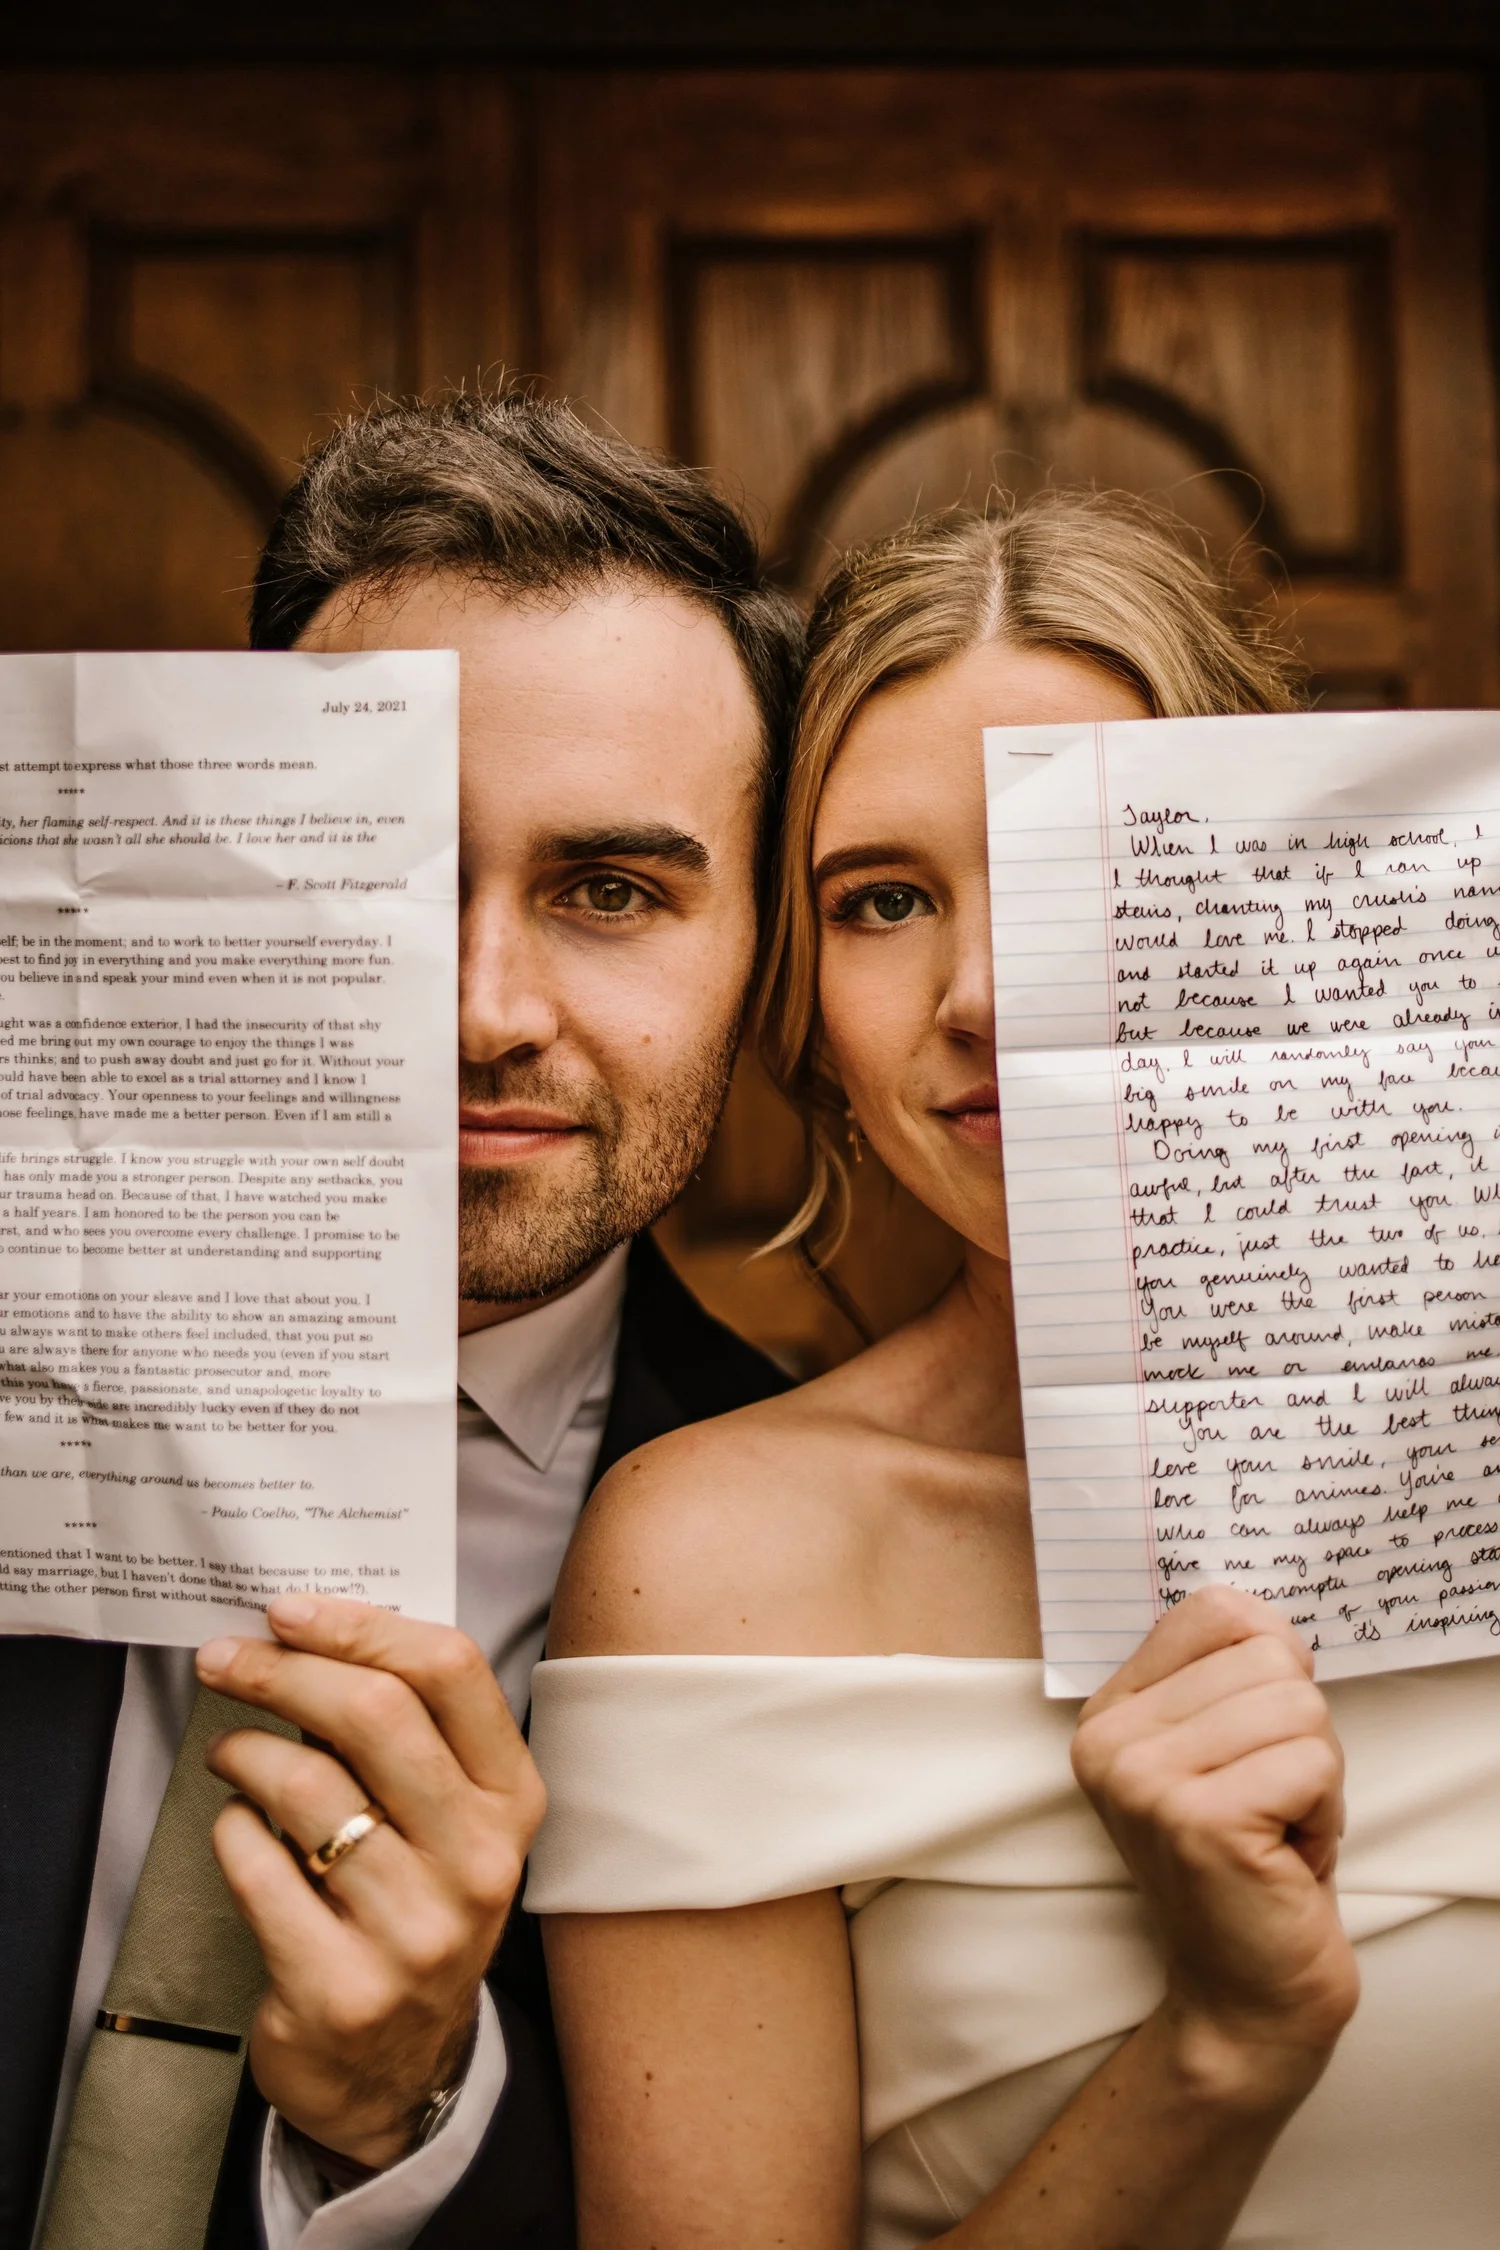 July 24, 2021
st attempt to express what those three words mean.
*****
ty, her flaming self-respect. And it is these things I believe in, even
icions that she wasn't all she should be. I love her and it is the
– F. Scott Fitzgerald
*****
elf; be in the moment; and to work to better yourself everyday. I
est to find joy in everything and you make everything more fun.
ou believe in and speak your mind even when it is not popular.
e.
ught was a confidence exterior, I had the insecurity of that shy
ed me bring out my own courage to enjoy the things I was
rs thinks; and to push away doubt and just go for it. Without your
ould have been able to excel as a trial attorney and I know I
of trial advocacy. Your openness to your feelings and willingness
hose feelings, have made me a better person. Even if I am still a
life brings struggle. I know you struggle with your own self doubt
has only made you a stronger person. Despite any setbacks, you
ur trauma head on. Because of that, I have watched you make
a half years. I am honored to be the person you can be
rst, and who sees you overcome every challenge. I promise to be
o continue to become better at understanding and supporting
ar your emotions on your sleave and I love that about you. I
ur emotions and to have the ability to show an amazing amount
u always want to make others feel included, that you put so
u are always there for anyone who needs you (even if you start
what also makes you a fantastic prosecutor and, more
this you have a fierce, passionate, and unapologetic loyalty to
ve you by their side are incredibly lucky even if they do not
few and it is what makes me want to be better for you.
*****
than we are, everything around us becomes better to.
– Paulo Coelho, "The Alchemist"
*****
entioned that I want to be better. I say that because to me, that is
ld say marriage, but I haven't done that so what do I know!?).
tting the other person first without sacrificing
Taylor,
When I was in high school, I
I thought that if I ran up
stairs, chanting my crush's nam
would love me. I stopped doing
and started it up again once w
not because I wanted you to
but because we were already i
day. I will randomly say your
big smile on my face becau
happy to be with you.
Doing my first opening i
awful, but after the fact, it
that I could trust you. Wh
practice, just the two of us,
you genuinely wanted to he
You were the first person
be myself around, make mista
mock me or embarass me.
supporter and I will alway
You are the best thin
love your smile, your se
love for animes. You're a
who can always help me
give me my space to process
impromptu opening sta
use of your passion
d it's inspiring